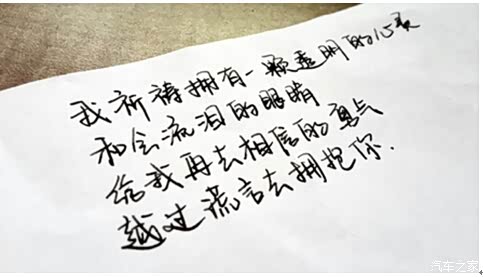 我祈祷拥有一颗透明的心灵
和会流泪的眼睛
给我再去相信的勇气
越过谎言去拥抱你.
汽车之家